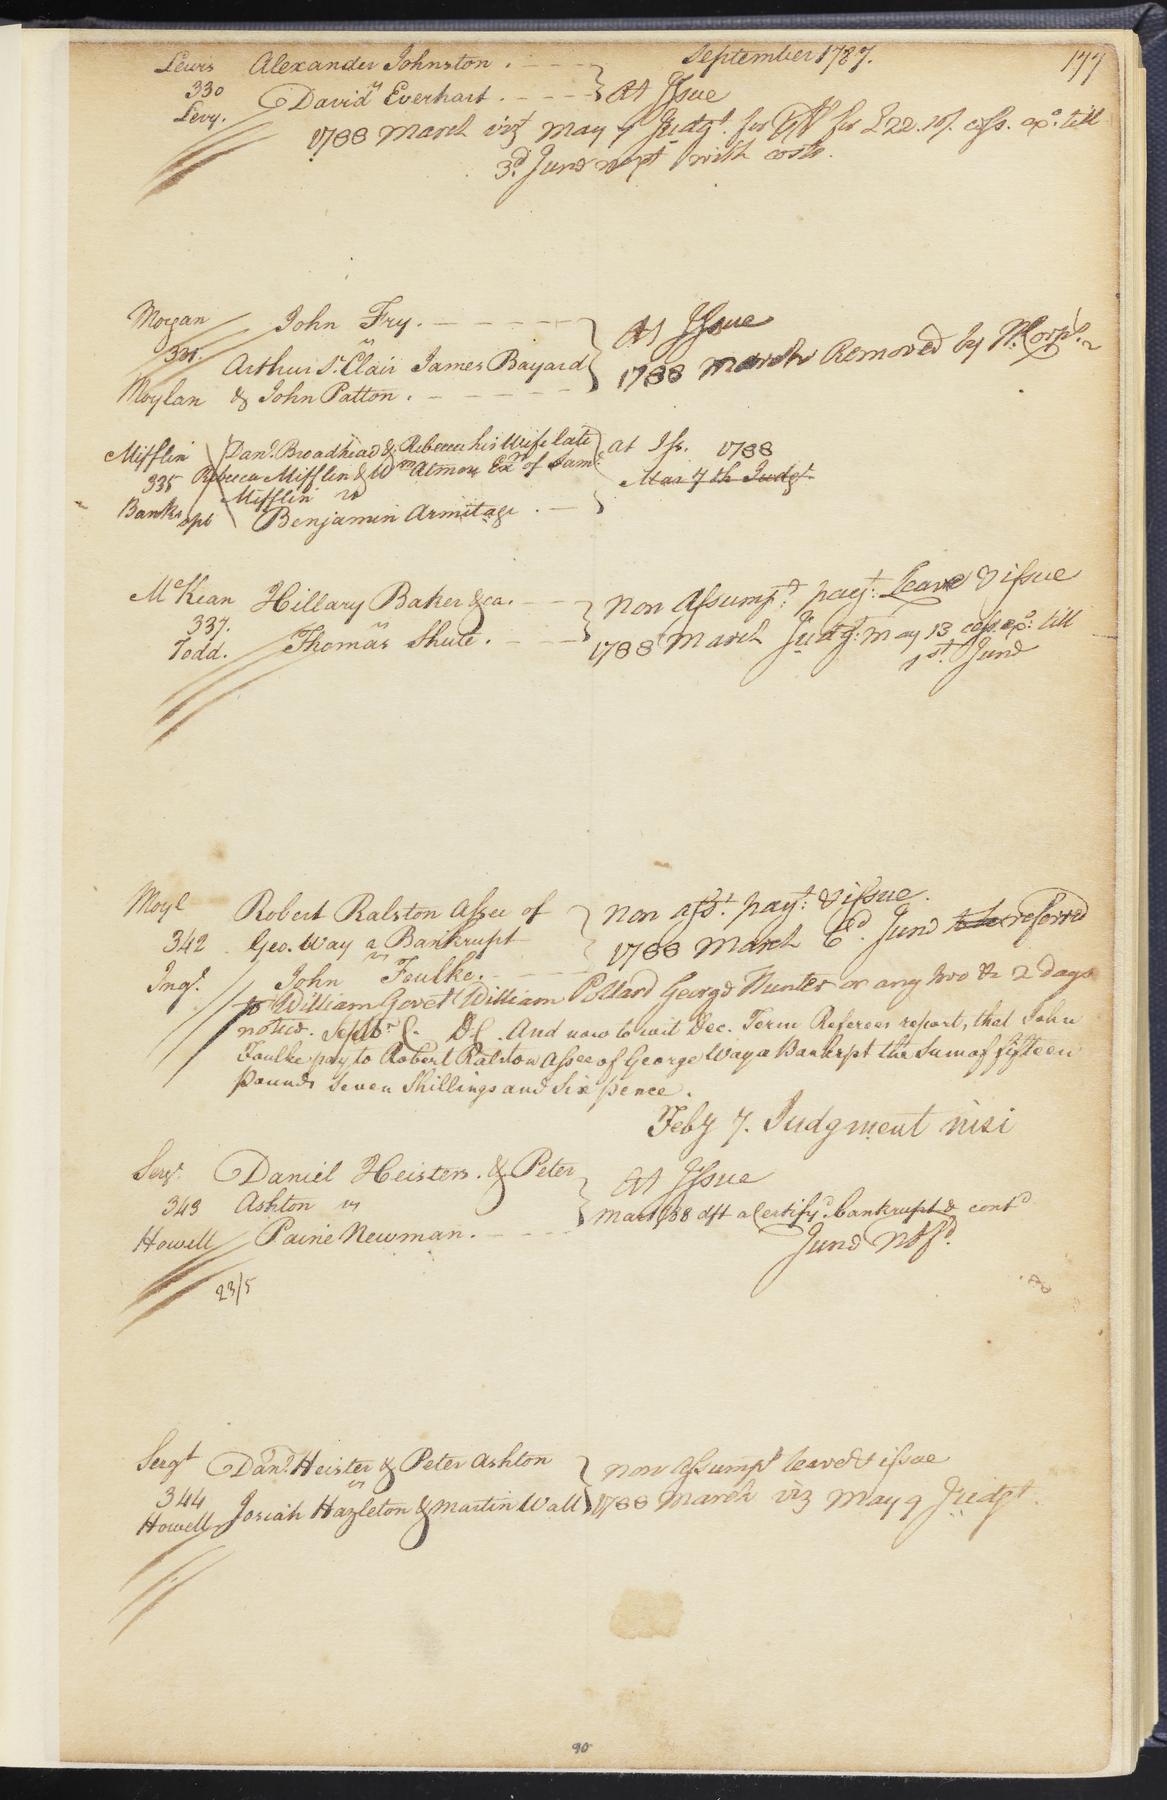 September 1787.
177
Lewis Alexander Johnston.
330 vs At Issue
Levy. David Everhart.
1788 March vizt May 7 Judgt. for Plff for £22. cess. exo. till
3d June next with costs.
Moylan John Fry.
331. vs At Issue
Arthur St. Clair James Bayard
Moylan & John Patton. 1788 March Removed by H. Corps.
Mifflin Danl. Broadhead & Rebecca his Wife late at Iss. 1788
335 Rebecca Mifflin & Wm Atmore Exrs of Saml. Mar 7th Judgt
Mifflin vs
Banks spt Benjamin Armitage.
McKean Hillary Baker &ca. non assumpt. payt. Leave & issue
337. vs
Todd. Thomas Shute. 1788 March Judgt. May 13 cess. exo. till
1st. June
Moyl Robert Ralston assee of non asst. payt. & issue.
342 Geo. Way a Bankrupt 1788 March Cd. June referred
vs
Ingl. John Foulke.
to William Govet William Pollard George Hunter or any two &c 2 days
notice. Septbr C. Dl. And now to wit Dec. Term Referees report, that John
Foulke pay to Robert Ralston assee of George Way a Bankrupt the Sum of fifteen
Pounds seven Shillings and Six pence.
Feby 7. Judgment nisi
Sergt. Daniel Heister. & Peter At Issue
343 Ashton vs
Howell Paine Newman. March 88 dft a Certifyd. bankrupt & contd
June
23/5
Sergt Danl. Heister & Peter Ashton non assumpt leave & issue
344 vs
Howell Josiah Hazleton & Martin Wall 1788 March viz May 9 Judgt.
90